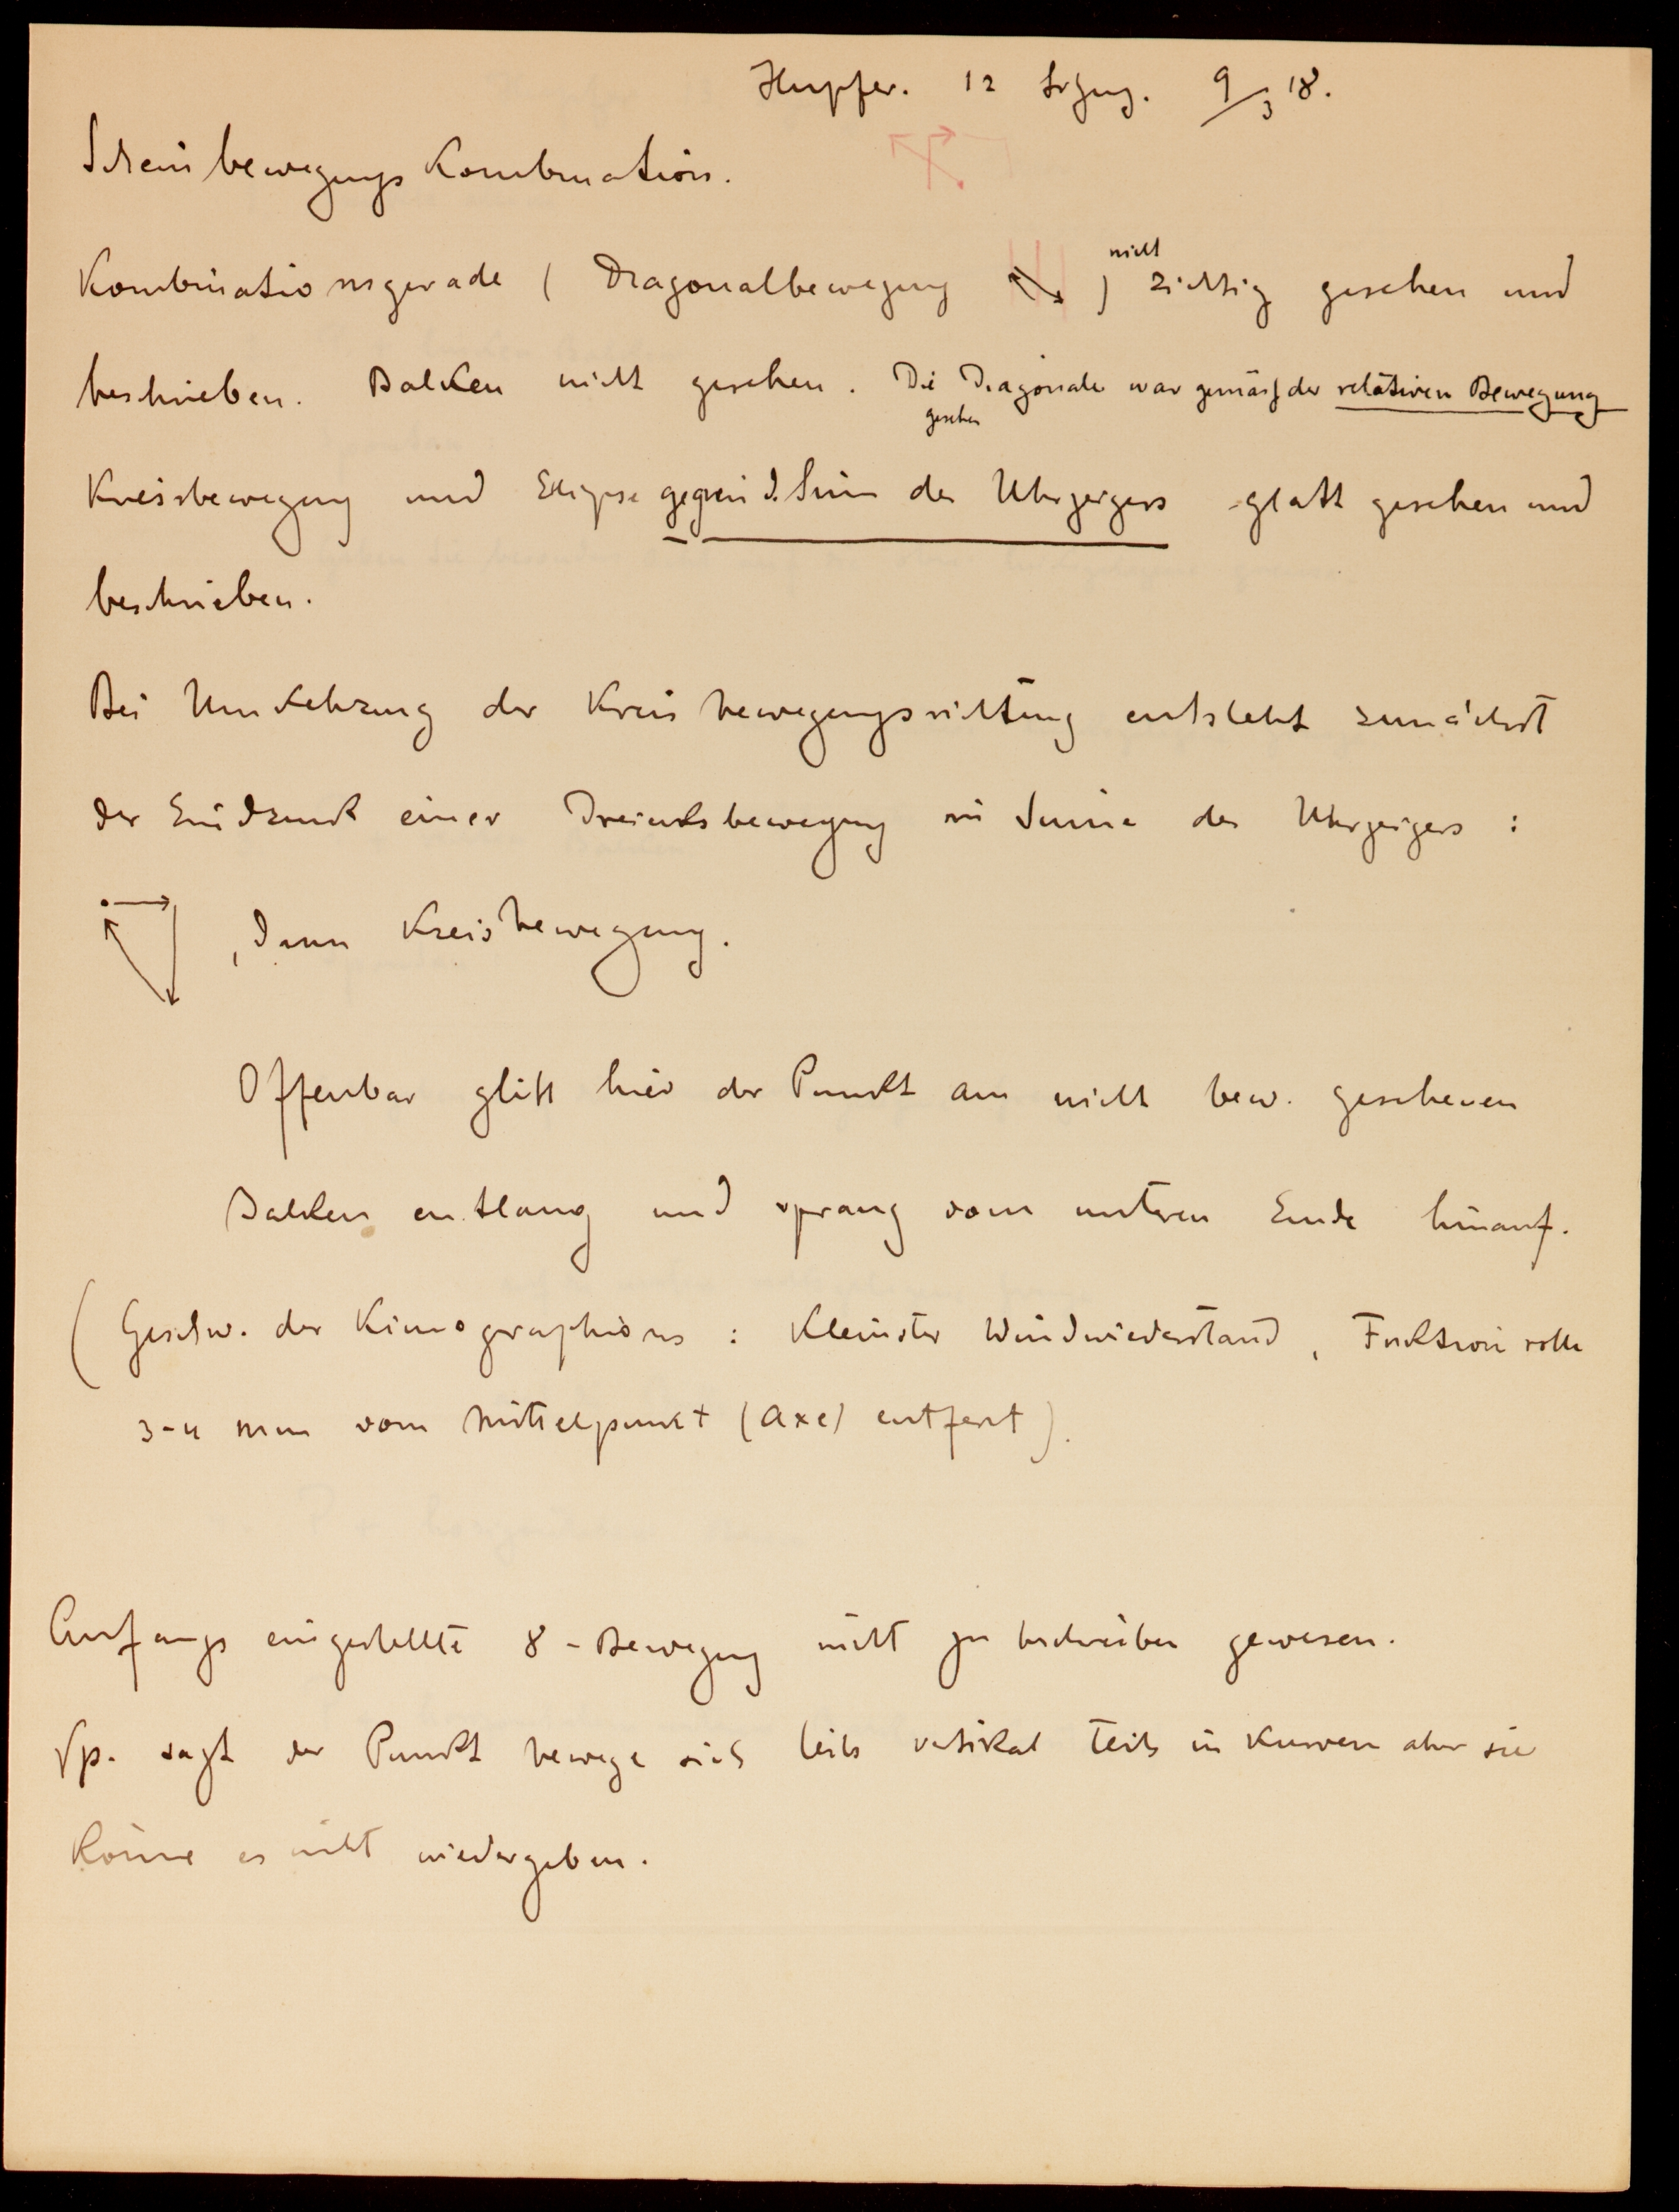 Hupfer. 12 9/3 18.
Scheinbewegungs Kombination.
nicht
Kombinationsgerade ( Diagonalbewegung ) richtig gesehen und
beschrieben. Balken nicht gesehen. Die Diagonale war gemäss der relativen Bewegung
gesehen
Kreisbewegung und Elipse gegen d. Sinn des Uhrzeigers glatt gesehen und
beschrieben.
Bei Umkehrung der Kreisbewegungsrichtung entsteht zunächst
der Eindruck einer Dreiecksbewegung im Sinne des Uhrzeigers :
, dann Kreisbewegung.
Offenbar glitt hier der Punkt am nicht bew. gesehenen
Balken entlang und sprang vom unteren Ende hinauf.
( Geschw. des Kimographions : Kleinster Windwiederstand , rolle
3-4 mm vom Mittelpunkt (Axe) entfernt ).
Anfangs eingestellte 8 - Bewegung nicht zu beschreiben gewesen.
Vp. sagt der Punkt bewege sich teils vertikal teils in Kurven aber sie
könne es nicht wiedergeben.